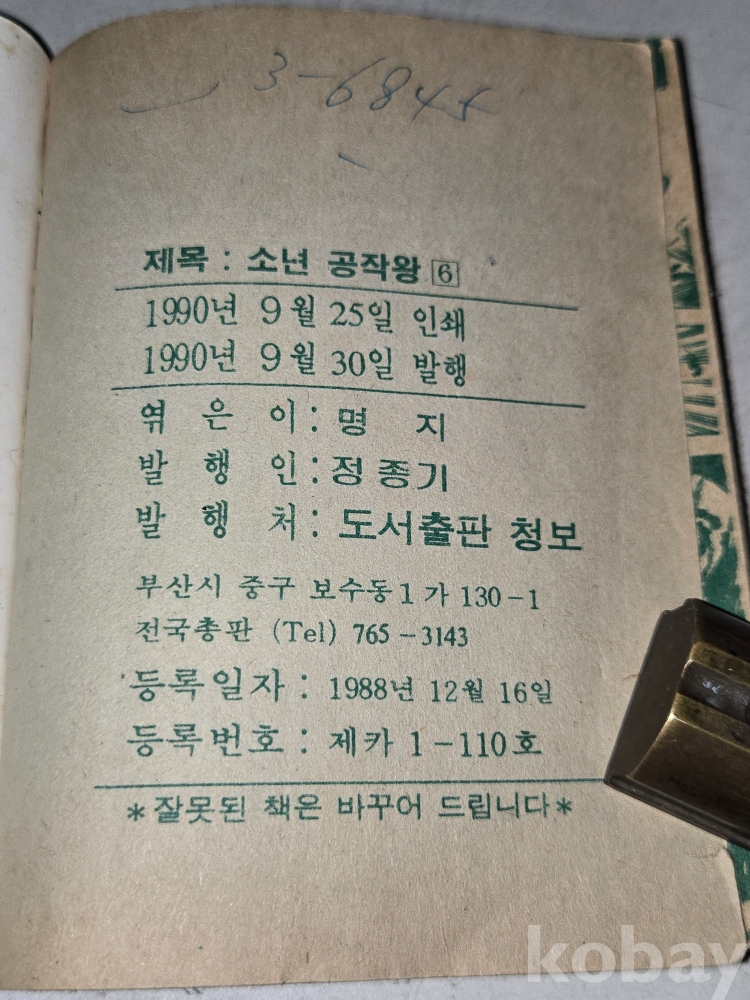 3-6845
제목 : 소년 공작왕 6
1990년 9월 25일 인쇄
1990년 9월 30일 발행
엮 은 이 : 명 지
발 행 인 : 정종기
발 행 처 : 도서출판 청보
부산시 중구 보수동1가 130-1
전국총판 (Tel) 765-3143
등록일자 : 1988년 12월 16일
등록번호 : 제카 1-110호
*잘못된 책은 바꾸어 드립니다*
kobay